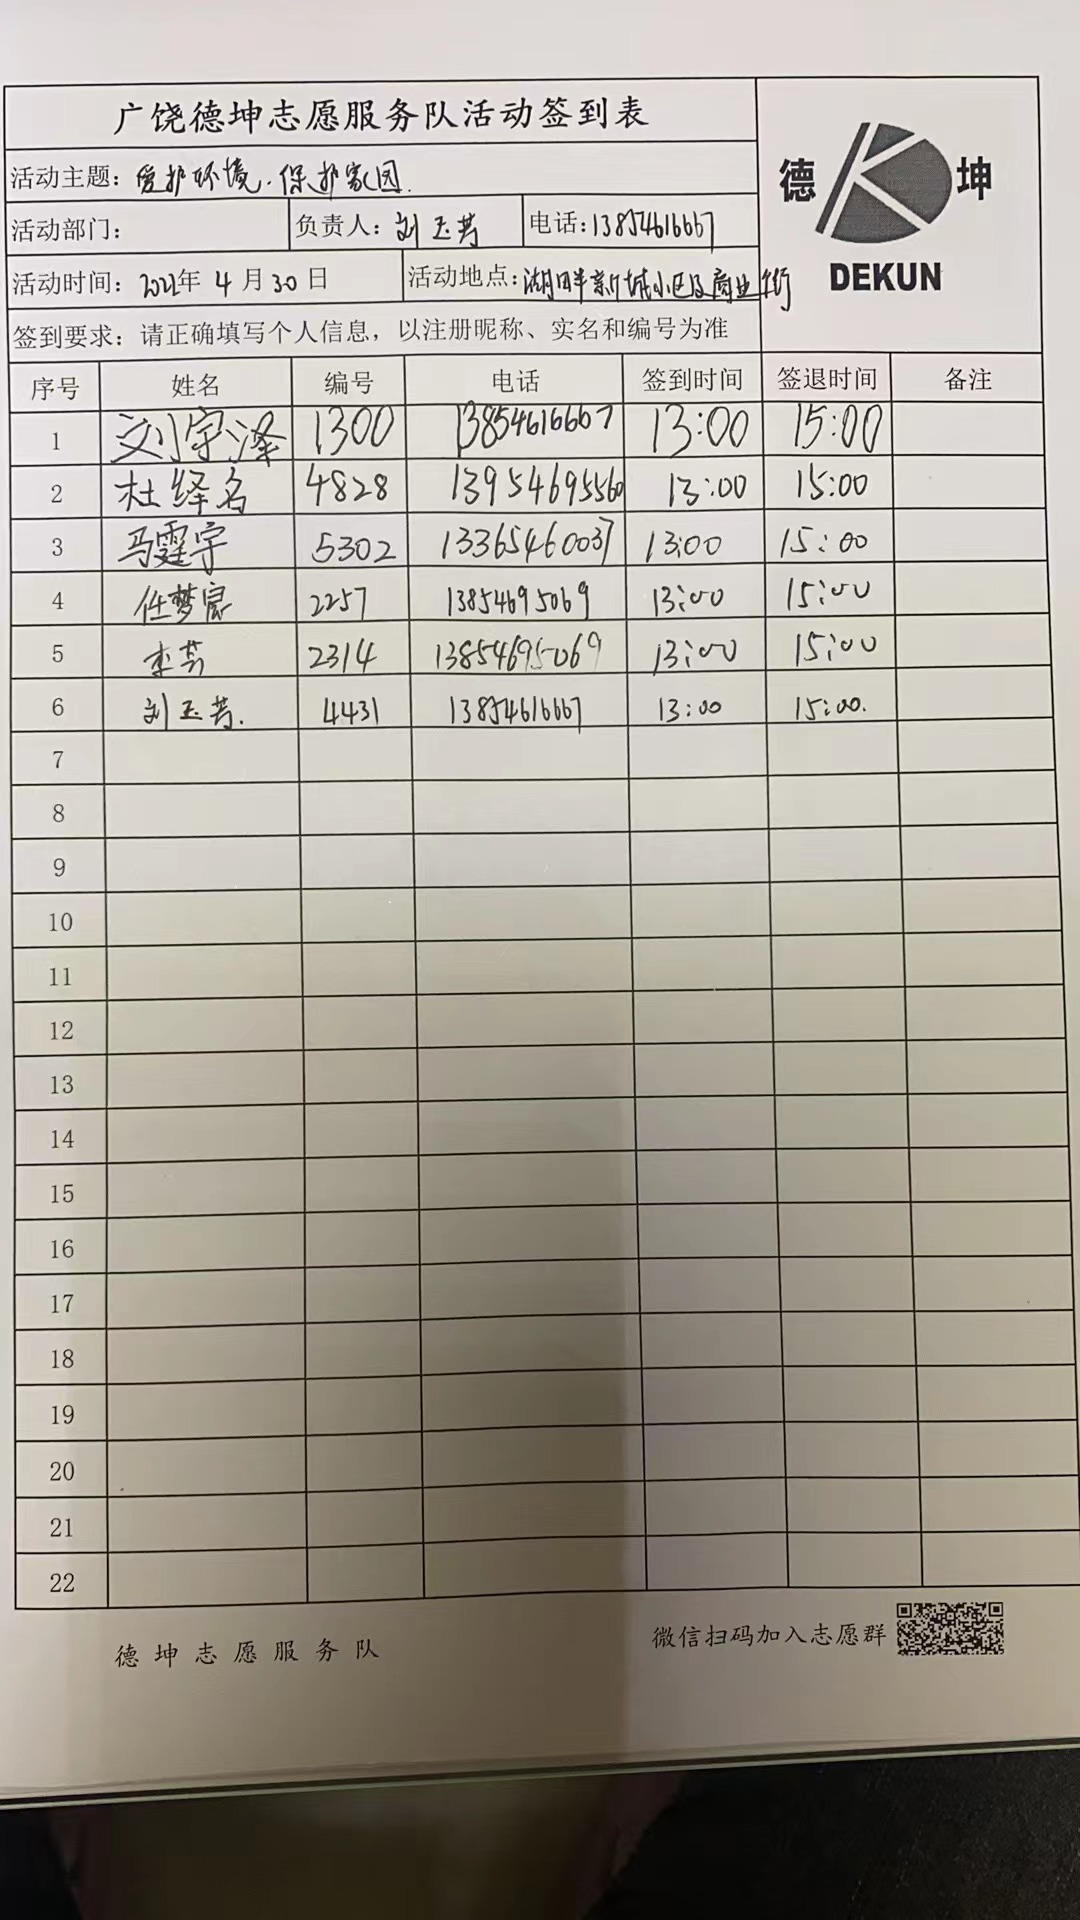 广饶德坤志愿服务队活动签到表
德 坤
DEKUN
活动主题：爱护环境.保护家园.
活动部门： 负责人：刘玉芳 电话:13854616667
活动时间：2022年 4 月 30 日 活动地点:湖畔新城小区及商业街
签到要求：请正确填写个人信息，以注册昵称、实名和编号为准
序号 姓名 编号 电话 签到时间 签退时间 备注
1 刘宇泽 1300 13854616667 13:00 15:00
2 杜绎名 4828 13954695560 13:00 15:00
3 马霆宇 5302 13365460037 13:00 15:00
4 任梦宸 2257 13854695069 13:00 15:00
5 2314 13854695069 13:00 15:00
6 刘玉芳. 4431 13854616667 13:00 15:00.
7
8
9
10
11
12
13
14
15
16
17
18
19
20
21
22
德坤志愿服务队 微信扫码加入志愿群